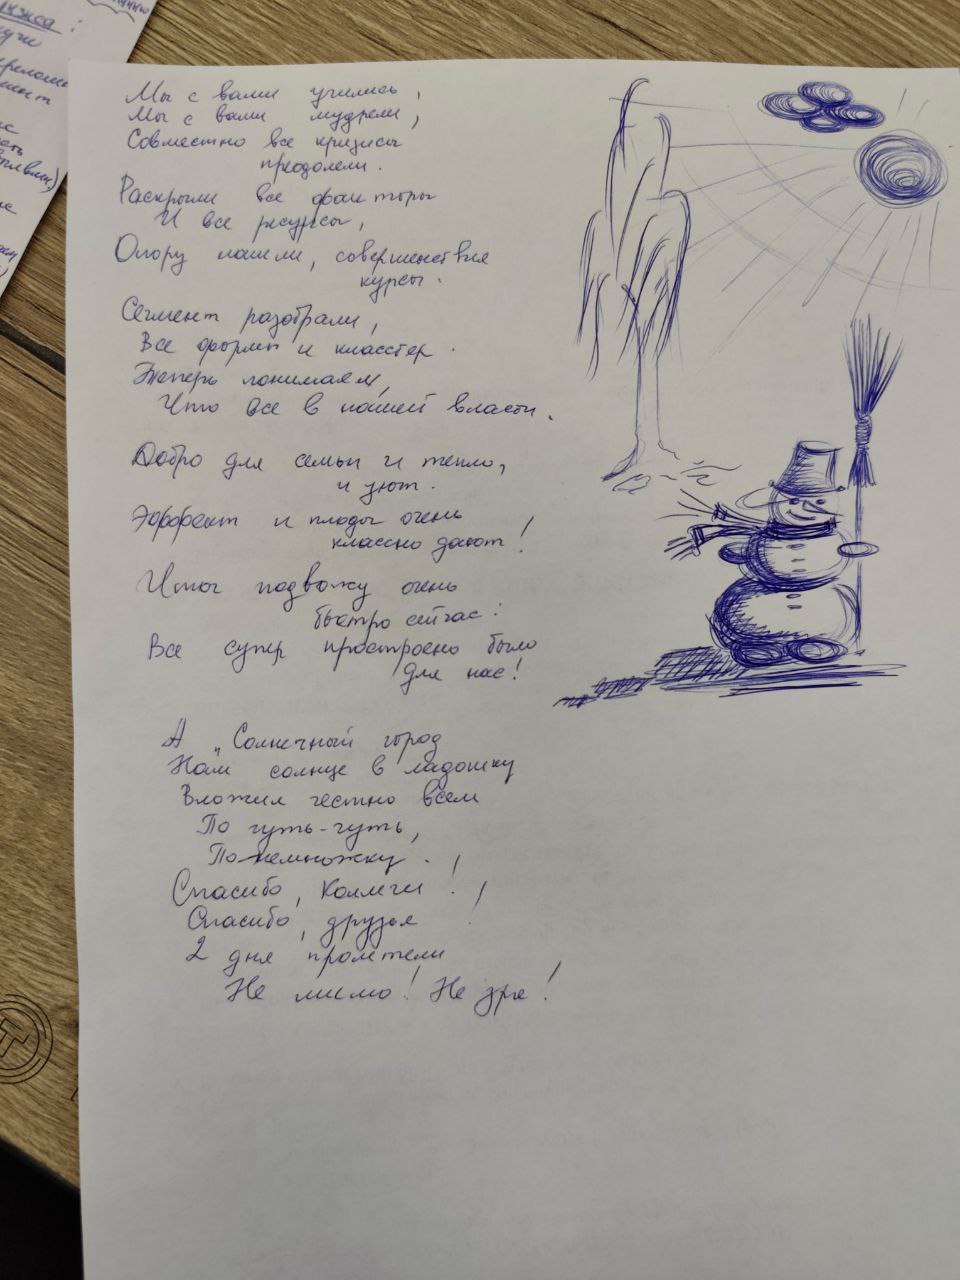 нужса:
Мы с вами учились,
Мы с вами мудрели,
Совместно все кризисы
преодолели.
Раскрыли все факторы
И все ресурсы,
Опору нашли, совершенствуя
курсы.
Сегмент разобрали,
Все формы и класстер.
Теперь понимаем,
Что все в нашей власти.
Добро для семьи и тепло,
и уют.
Эффект и плоды очень
классно дают!
Итог подвожу очень
быстро сейчас:
Все супер простроено было
для нас!
А "Солнечный город
Нам солнце в ладошку
Вложил честно всем
По чуть-чуть,
По немножку.
Спасибо, Коллеги!
Спасибо, друзья!
2 дня пролетели
Не мимо! Не зря!